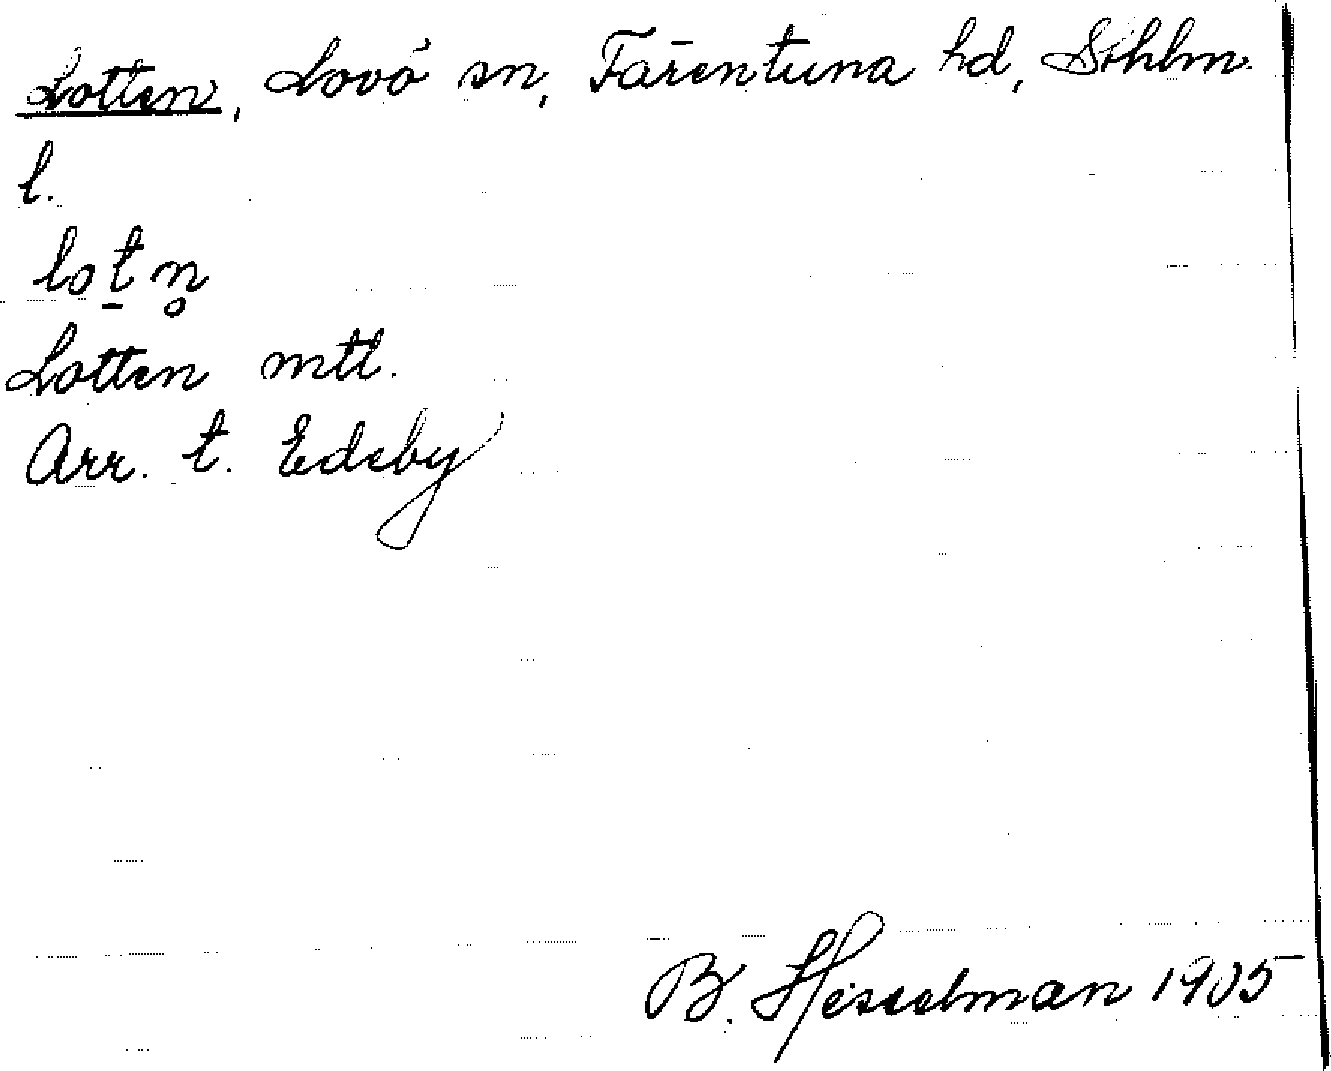 Lotten, Lovö sn, Färentuna hd, Sthlm
l.
lot̲n̥
Lotten mtl.
Arr. t. Edeby
B. Hesselman 1905